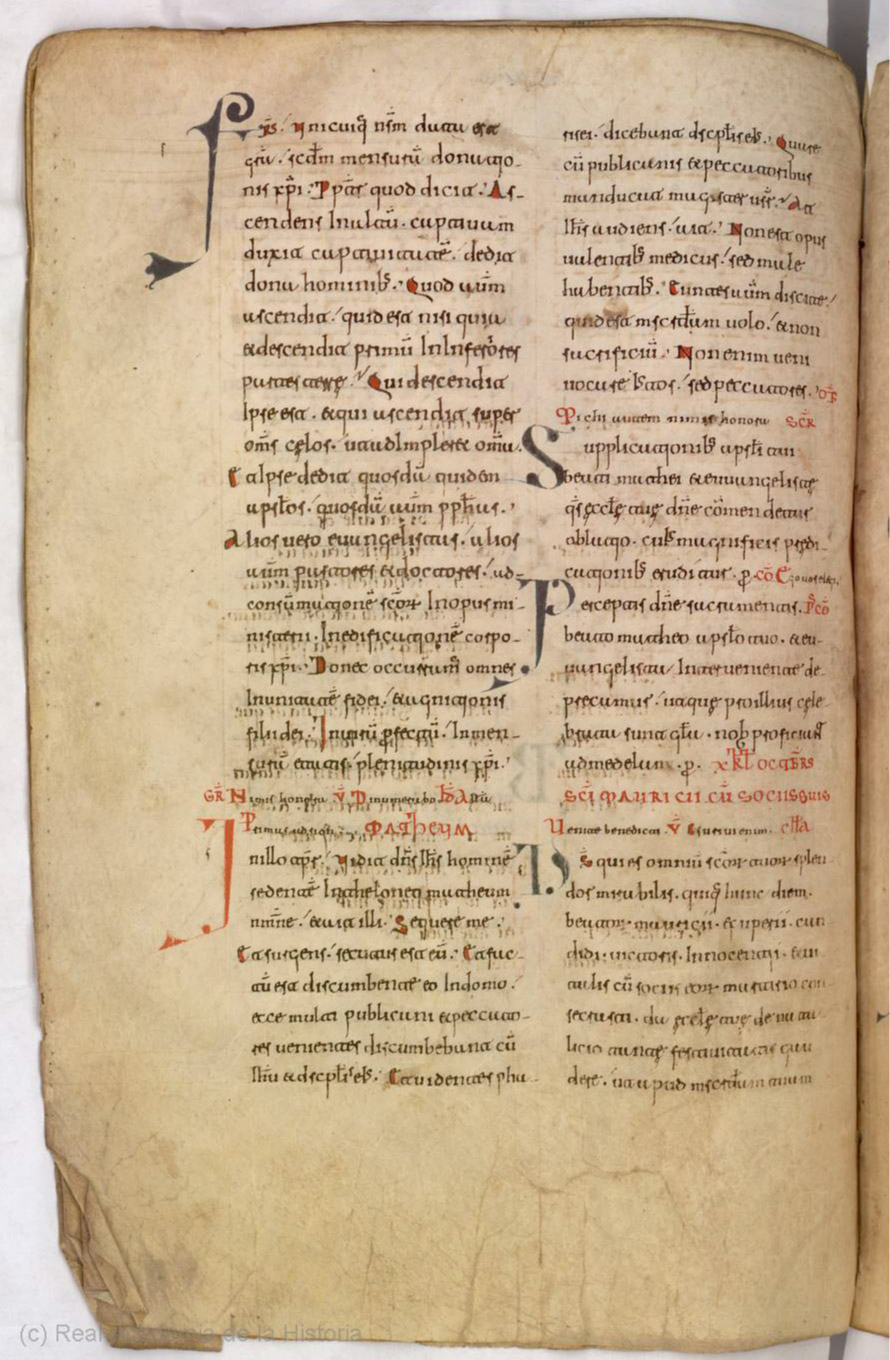 Frs. Unicuiq nsm data est
gra. scdm mensura donatio
nis xpi. Pptr quod dicit. As
cendens In altu. captiuam
duxit captiuitate. dedit
dona hominib. Quod aum
ascendit. quid est nisi quia
et descendit primu In Inferiores
partes terre. Qui descendit
Ipse est. et qui ascendit super
oms celos. ut adImpleret omia.
Et Ipse dedit quosda quidem
apstos. quosda aum pphas.
Alios uero euangelistas. alios
aum pastores et doctores. ad
consumatione scor In opus mi
nisterii. In edificatione corpo
ris xpi. Donec occurram omnes
In unitate fidei. et agnitionis
filii dei. In uiru pfectu. In men
sura etatis plenitudinis xpi.
GR Nimis honorati V Dinumerabo
MATHEUM
In illo tpr. Uidit dns Ihs homine
sedente In theloneo matheum
nmne. et ait illi. Sequere me.
Et surgens. secutus est eu. Et fac
tu est discumbente eo In domo.
ecce multi publicani et peccato
res uenientes discumbebant cu
Ihu et dscplis es. Et uidentes pha
risei. dicebant dscplis es. Quare
cu publicanis et peccatoribus
manducat magister usr. At
Ihs audiens. ait. Non est opus
ualentib medicus. sed male
habentib. Euntes aum discite.
quid est mscdam uolo. et non
sacrificiu. Non enim ueni
uocare Istos. sed peccatores. OF
Michi autem nimis honora SCR
Supplicationib apsti tui
beati mathei et euuangeliste
qs eccle tue dne comendetur
oblatio. cuis magnificis predi
cationib eruditur. p. CO
Perceptis dne sacramentis. PCO
beato matheo apsto tuo. et eu
uangelista Interueniente de
precamur. ut aque pro illius cele
brata sunt gla. nob proficiant
ad medelam. p. X KL OCTBRS
SCI MAURICII CU SOCIIS SUIS
Uenite benedicti. V
DS qui es omniu scor tuor splen
dor mirabilis. quiq hunc diem.
beator mauricii. exuperii. can
didi. uictoris. Innocentii. et ui
talis cu sociis eor martirio con
secrasti. da eccle tue de nata
licio tante festiuitatis gau
dere. ut apud mscdam tuam